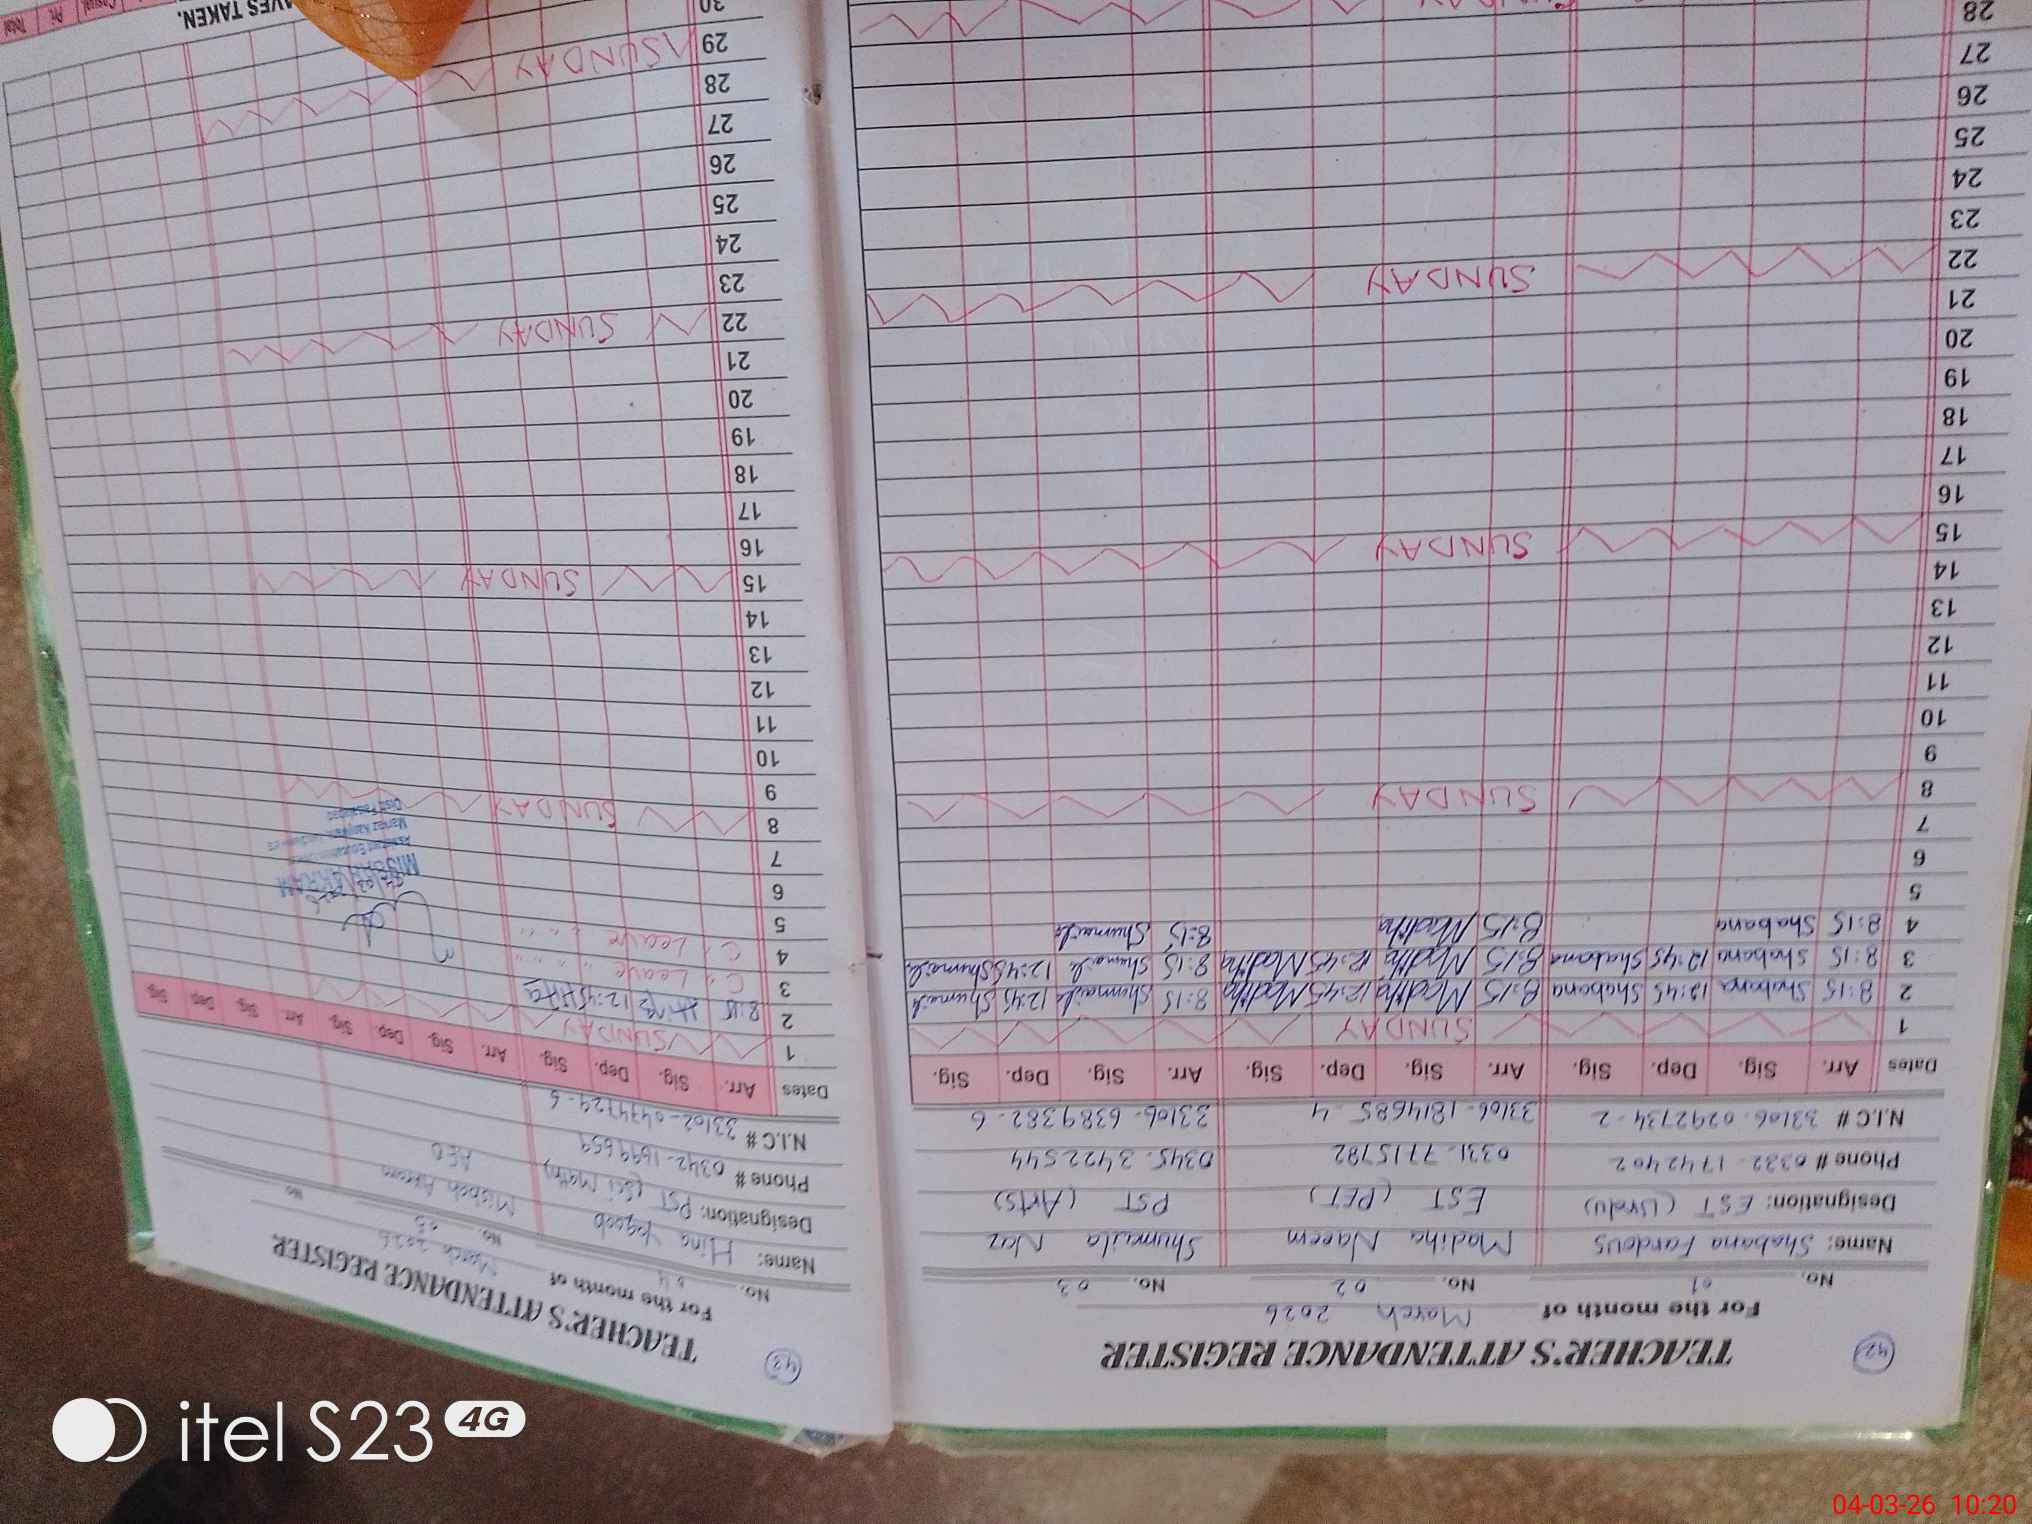 42
TEACHER'S ATTENDANCE REGISTER
For the month of March 2026
No. 01 No. 02 No. 03
Name: Shabana Fardous Madiha Naeem Shumaila Naz
Designation: EST (Urdu) EST (PET) PST (Arts)
Phone # 0332-1742402 0331-7715792 0345-3422544
N.I.C # 33106-0292734-2 33106-1814685-4 33106-6389382-6
Dates Arr. Sig. Dep. Sig. Arr. Sig. Dep. Sig. Arr. Sig. Dep. Sig.
1 SUNDAY
2 8:15 Shabana 12:45 Shabana 8:15 Madiha 12:45 Madiha 8:15 Shumaila 12:45 Shumaila
3 8:15 Shabana 12:45 Shabana 8:15 Madiha 12:45 Madiha 8:15 Shumaila 12:45 Shumaila
4 8:15 Shabana 8:15 Madiha 8:15 Shumaila
5
6
7
8 SUNDAY
9
10
11
12
13
14
15 SUNDAY
16
17
18
19
20
21
22 SUNDAY
23
24
25
26
27
28
43
TEACHER'S ATTENDANCE REGISTER
For the month of March 2026
No. 04 No. 05 No.
Name: Hina Yaqoob Misbah Akram
Designation: PST (Sci Math) AEO
Phone # 0342-1699659
N.I.C # 33102-0474729-6
Dates Arr. Sig. Dep. Sig. Arr. Sig. Dep. Sig. Arr. Sig. Dep. Sig.
1 SUNDAY
2 8:15 Hina 12:45 Hina
3 C. Leave " "
4 C. Leave " "
5
6
7
8 SUNDAY
9
10
11
12
13
14
15 SUNDAY
16
17
18
19
20
21
22 SUNDAY
23
24
25
26
27
28
29 SUNDAY
30
MISBAH AKRAM
Assistant Education
Markaz
AVES TAKEN.
Casual
Pri.
Total
itel S23 4G
04-03-26 10:20